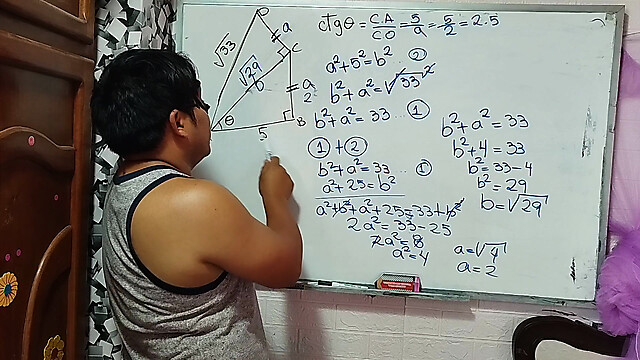 D
a
√33
C
√29
b
a
2
θ
B
5
ctgθ = C.A/CO = 5/a = 5/2 = 2.5
a²+5²=b² ... ②
b²+a²=√33²
b²+a²=33 ... ①
①+②
b²+a²=33 ... ①
a²+25=b²
a²+b²+a²+25=33+b²
2a²=33-25
2a²=8
a²=4
a=√4
a=2
b²+a²=33
b²+4=33
b²=33-4
b²=29
b=√29